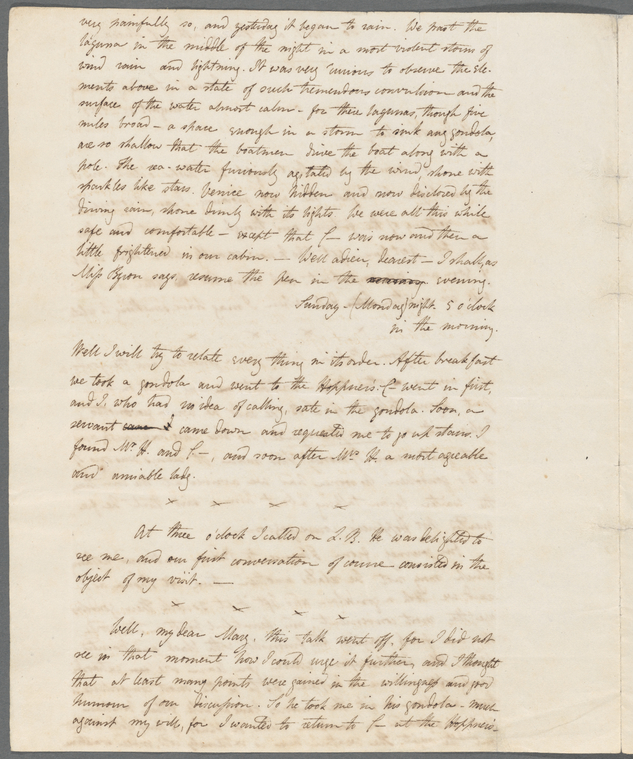 very painfully so, and yesterday it began to rain. We past the
laguna in the middle of the night in a most violent storm of
wind rain and lightning. It was very curious to observe the ele-
ments above in a state of such tremendous convulsion and the
surface of the water almost calm - for these lagunas, though five
miles broad - a space enough in a storm to sink any gondola,
are so shallow that the boatmen drive the boat along with a
pole. The sea-water furiously agitated by the wind, shone with
sparkles like stars. Venice now hidden and now disclosed by the
driving rain, shone dimly with its lights. We were all this while
safe and comfortable - except that C- was now and then a
little frightened in our cabin. - Well adieu, dearest - I shall, as
Miss Byron says resume the pen in the evening.
Sunday - (Monday) night 5 o'clock
in the morning.
Well I will try to relate every thing in its order. After breakfast
we took a gondola and went to the Hoppners. C- went in first,
and I, who had no idea of calling, sate in the gondola. Soon, a
servant came down and requested me to go up stairs. I
found Mr. H. and C-, and soon after Mrs. H. a most agreeable
and amiable lady.
x x x x
At three o'clock I called on L.B. He was delighted to
see me, and our first conversation of course consisted in the
object of my visit. -
x x x x
Well, my dear Mary, this talk went off, for I did not
see in that moment how I could urge it further, and I thought
that at least many points were gained in the willingness and good
humour of our discussion. So he took me in his gondola - much
against my will, for I wanted to return to C- at the Hoppners